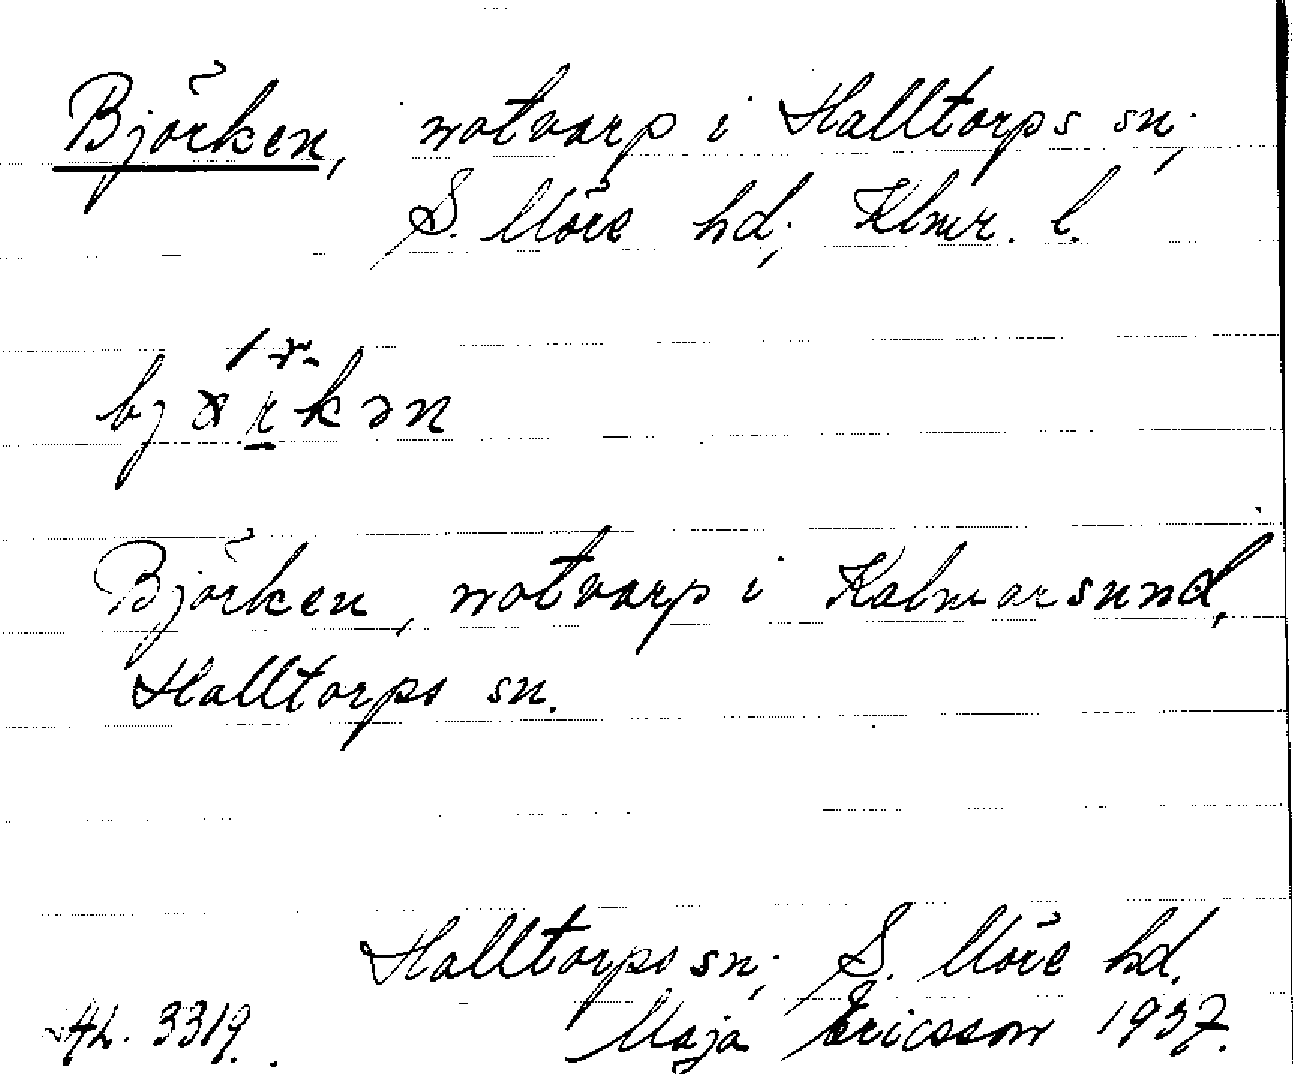 Björken, notvarp i Halltorps sn;
S. Möre hd; Klmr. l.
Björken, notvarp i Kalmarsund,
Halltorps sn.
Halltorps sn; S. Möre hd.
Maja Ericsson 1937.
3319.